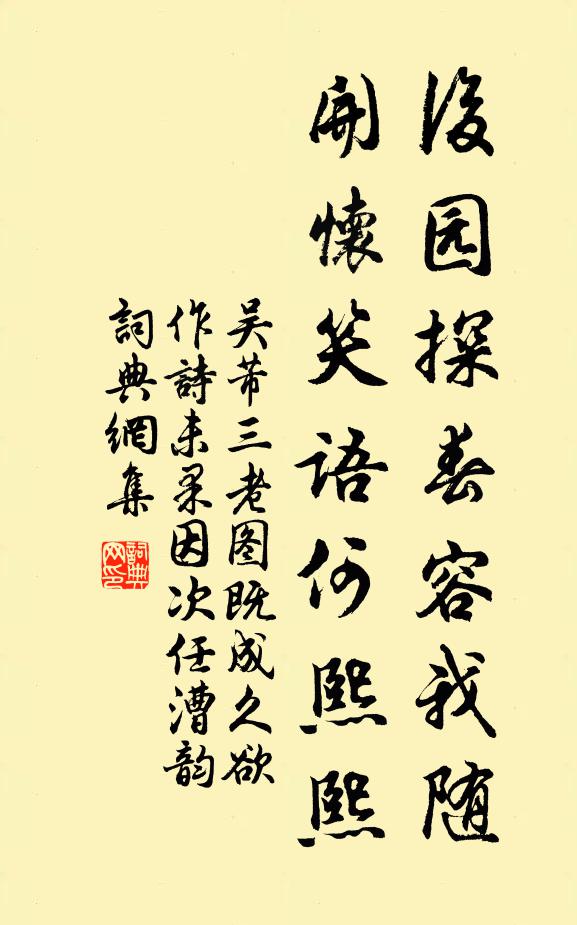 後园探春容我随
開懷笑語何熙熙
吴芾三老圖既成久欲
作詩未果因次任漕韵
詞典網集
詞典网印